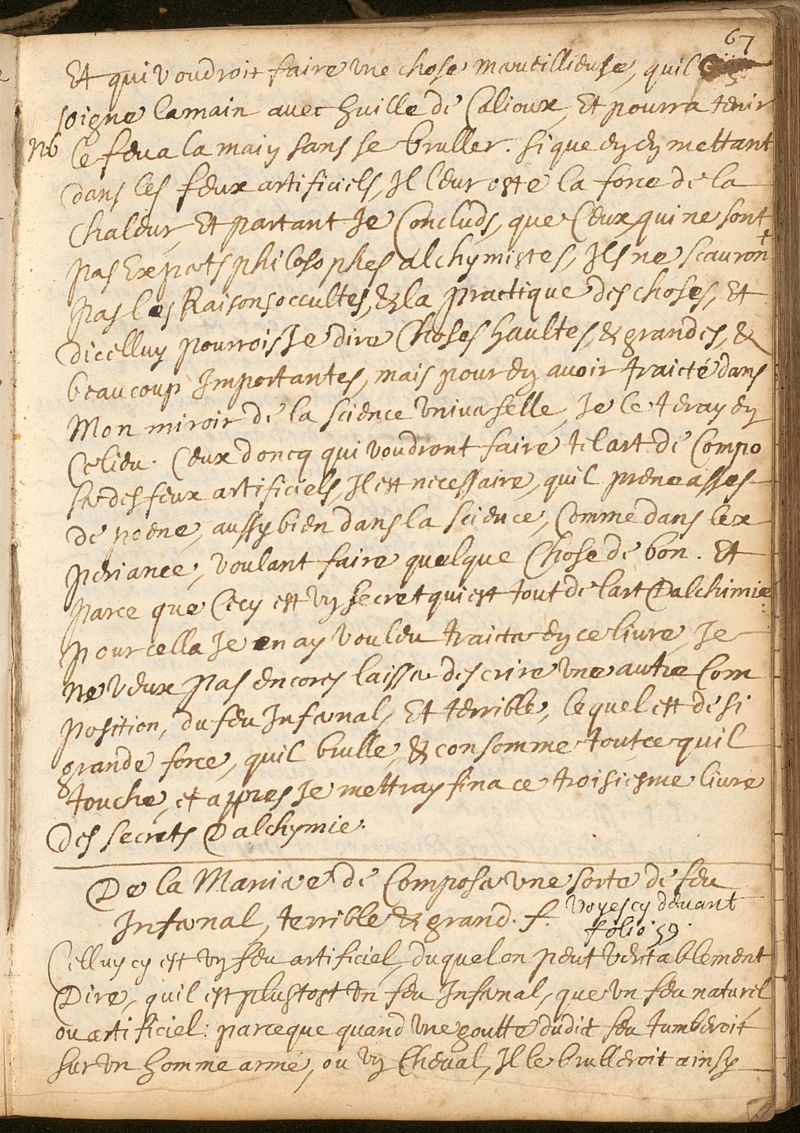 67
Et qui voudroit faire une chose merveillieuse, quil
soigne la main avec huille de Calioux, Et pourra tenir
NB le feu a la main sans se bruller. si que en en mettant
dans les feux artificiels, Il leur oste la force de la
chaleur, Et partant Je Concluds, que Ceux qui ne sont
pas Experts philosophes alchymistes, Ils ne scauront
pas les Raisons occultes, & la practique des choses, Et
dicelluy pourrois Je dire Choses haultes, & grandes, &
beaucoup Importantes, mais pour en avoir traicté dans
Mon miroir de la science universelle, Je le teray en
Ce lieu. Ceux doncq qui voudront faire tel art de Compo
ser des feux artificiels, Il est necessaire, quil prene asses
de poene, aussy bien dans la science, Comme dans lex
periance, voulant faire quelque Chose de bon. Et
parce que Cecy est un secret qui est tout de lart Dalchimie
pour cella Je en ay voulu traicter en ce livre, Je
Ne veux pas encores laisser descrire une autre Com
position, du feu Infernal, Et terrible, lequel est de si
grande force, quil brulle, & consomme tout ce quil
touche, et appres Je mettray fin a ce troisiesme livre
Des secrets Dalchymie.
De la Maniere de Composer une sorte de feu
Infernal, terrible & grand. f. Voyes cy devant
folio 59.
Celluy cy est un feu artificiel, duquel on peut veritablement
Dire, quil est plustost un feu Infernal, que un feu naturel
ou artificiel: parceque quand une goutte dudit feu tumberoit
sur un homme armé, ou un Cheval, Il le brulleroit ainsy